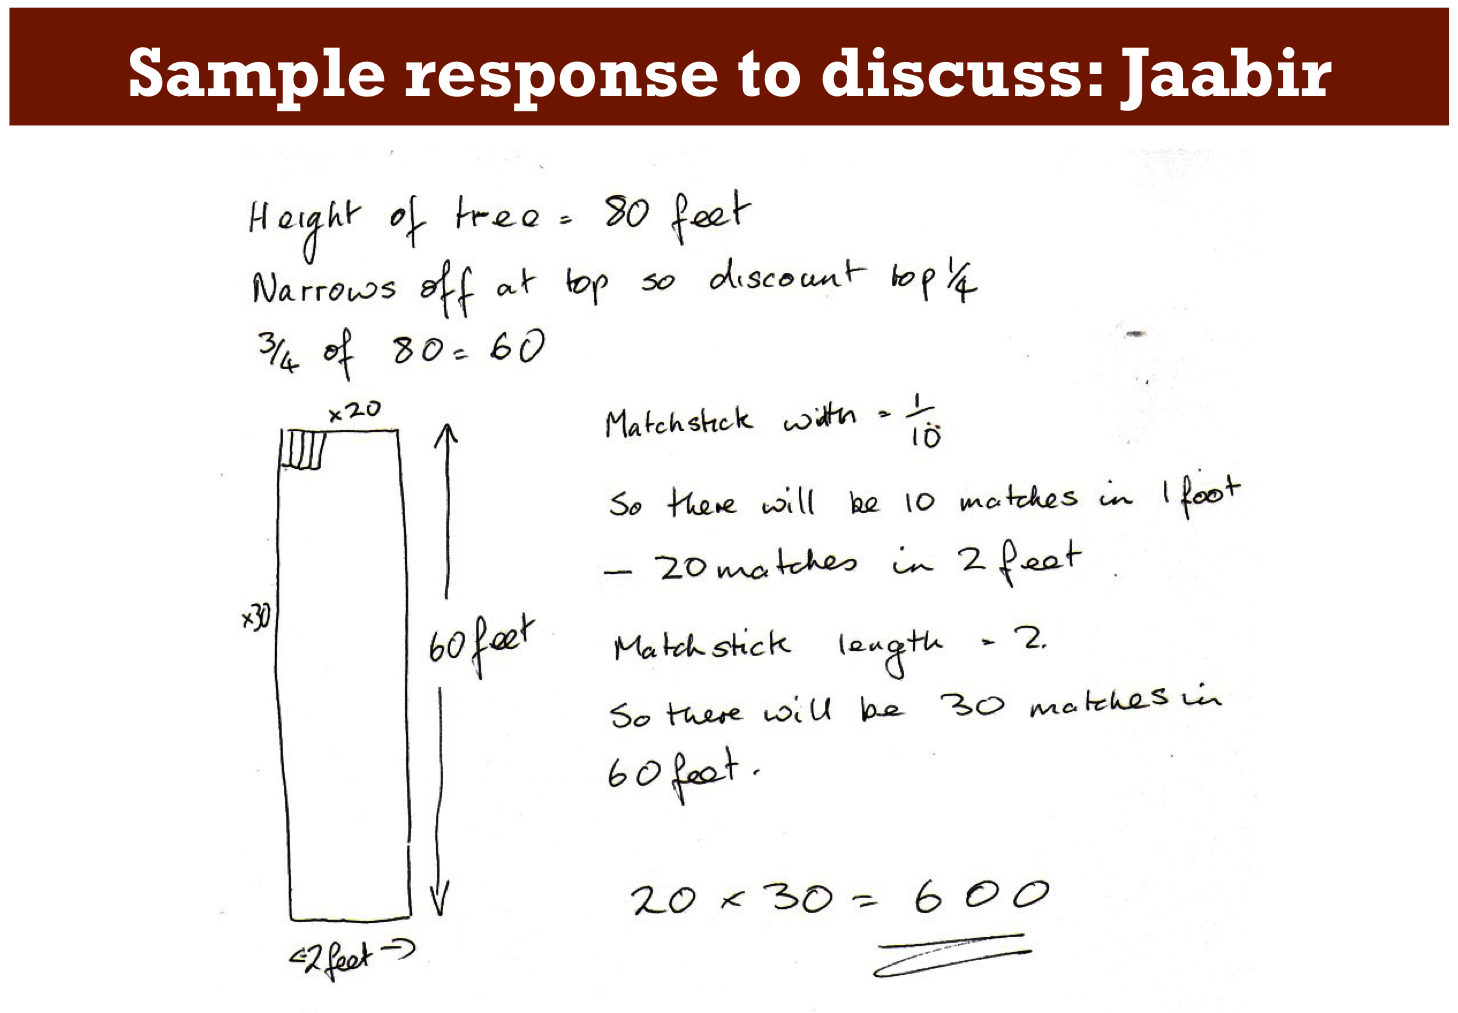 Sample response to discuss: Jaabir
Height of tree = 80 feet
Narrows off at top so discount top 1/4
3/4 of 80 = 60
x20
x30
60 feet
<-2 feet->
Matchstick width = 1/10
So there will be 10 matches in 1 foot
– 20 matches in 2 feet
Matchstick length = 2.
So there will be 30 matches in
60 feet.
20 x 30 = 600